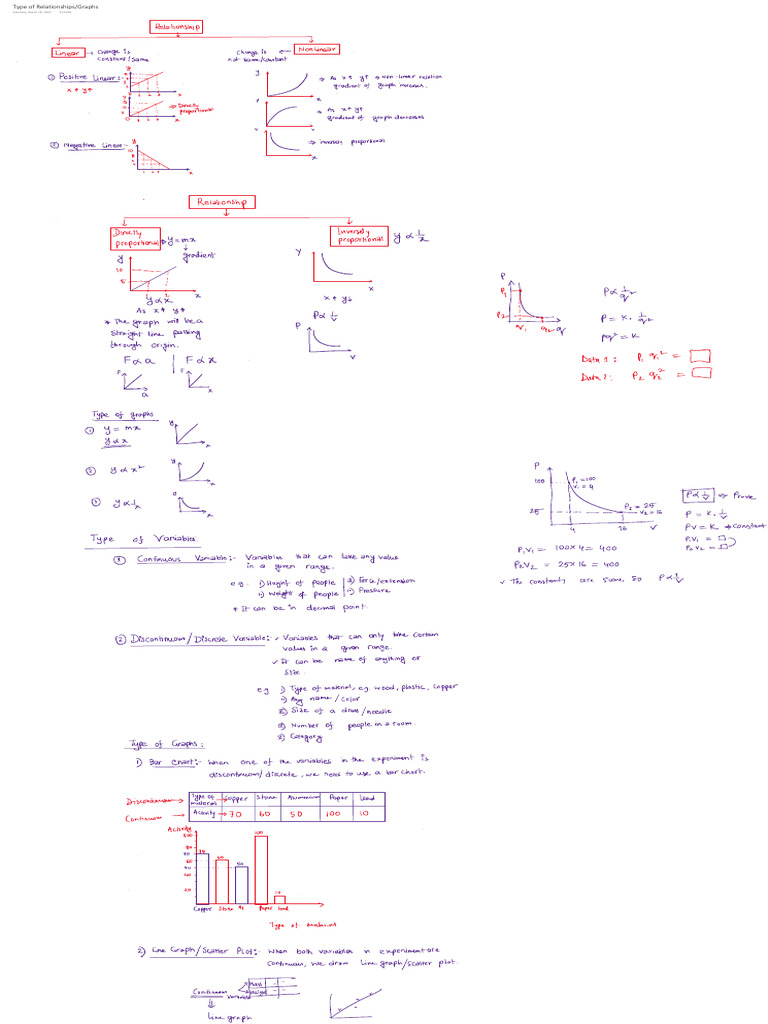 Type of Relationships/Graphs
Relationship
Linear → Change is constant/same
Change is not same/constant ← Nonlinear
① Positive Linear:-
x↑ y↑
→ Directly proportional
→ As x↑ y↑ → non-linear relation
gradient of graph increases.
→ As x↑ y↑
gradient of graph decreases
→ inversely proportional
② Negative Linear:-
Relationship
Directly proportional → y = mx
gradient
Inversely proportional y ∝ 1/x
y
10
5
x
y ∝ x
As x↑ y↑
* The graph will be a
straight line passing
through origin.
F ∝ a | F ∝ x
Y
x
x↑ y↓
P ∝ 1/V
P
V
P
P₁
P₂
q₁ q₂ q
P ∝ 1/q²
P = K. 1/q²
pq² = K
Data 1: P₁ q₁² = □
Data 2: P₂ q₂² = □
Type of graphs
① y = mx
y ∝ x
② y ∝ x²
③ y ∝ 1/x
P
100
25
P₁ = 100
V₁ = 4
P₂ = 25
V₂ = 16
4 16 V
P ∝ 1/V ⇒ Prove
P = K. 1/V
PV = K → Constant
P₁V₁ = □
P₂V₂ = □
P₁V₁ = 100 x 4 = 400
P₂V₂ = 25 x 16 = 400
✓ The constants are same, so P ∝ 1/V
Type of Variables
① Continuous Variable:- Variables that can take any value
in a given range.
e.g. i) Height of people | iii) Force/extension
ii) Weight of people | iv) Pressure
* It can be in decimal point.
② Discontinuous/Discrete Variable:- ✓ Variables that can only take certain
values in a given range.
✓ It can be name of anything or
size.
e.g i) Type of material, e.g. wood, plastic, copper
ii) Any name/color
iii) Size of a dress/needle
iv) Number of people in a room.
v) Category
Types of Graphs:
1) Bar Chart:- When one of the variables in the experiment is
discontinuous/discrete, we need to use a bar chart.
Discontinuous → Type of material Copper Stone Aluminium Paper Lead
Continuous → Activity → 70 60 50 100 10
Activity
100
80
70
60
50
20
70 60 50 100 10
Copper Stone Al Paper Lead
Type of material
2) Line Graph/Scatter Plot:- When both variables in experiment are
continuous, we draw line graph/scatter plot.
Continuous Variable
Mass
Height
Line graph